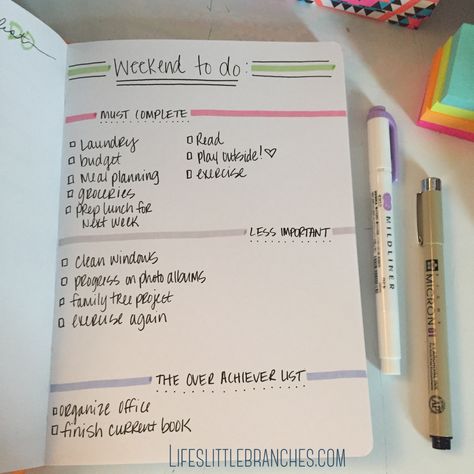 Weekend to do:
MUST COMPLETE
Laundry
budget
Meal planning
groceries
prep lunch for
next week
Read
play outside!♡
exercise
LESS IMPORTANT
clean windows
progress on photo albums
family tree project
exercise again
THE OVER ACHIEVER LIST
organize office
finish current book
MILDLINER
MICRON 01
LIFESLITTLEBRANCHES.COM